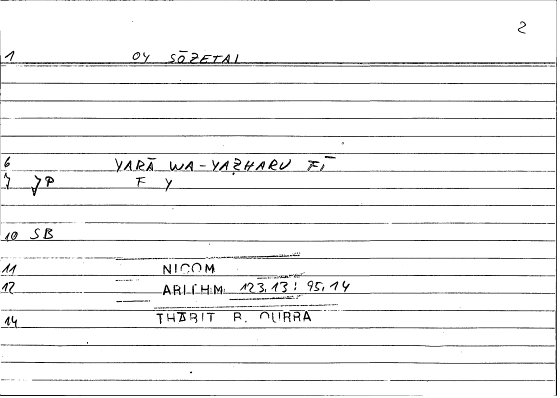 2
1 OY SŌZETAI
6 YARĀ WA-YAẒHARU FĪ
7 JP F Y
10 SB
11 NICOM
12 ARITHM. 123,13 : 95,14
14 THĀBIT B. QURRA